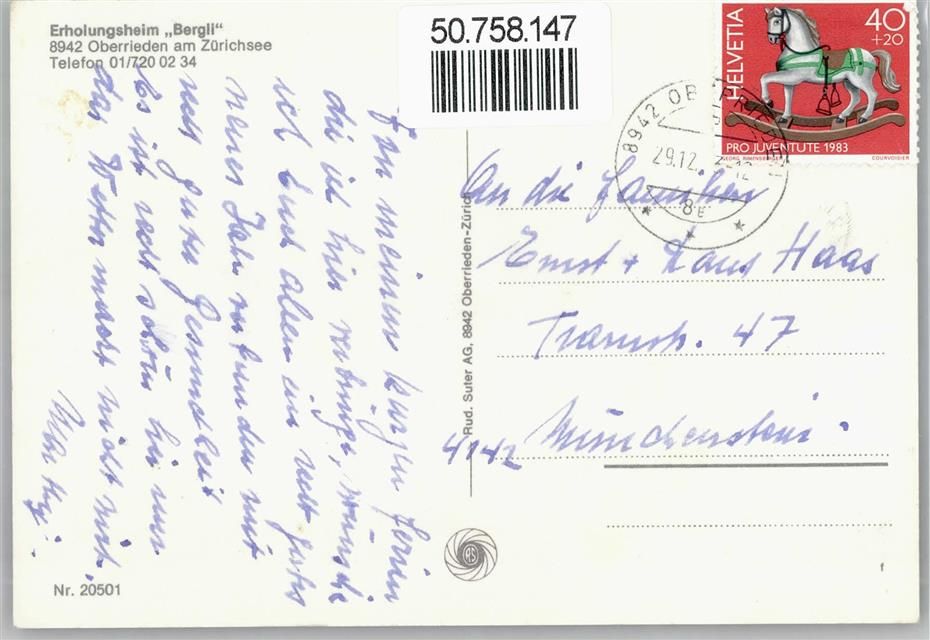 Erholungsheim „Bergli“
8942 Oberrieden am Zürichsee
Telefon 01/720 02 34
50.758.147
HELVETIA
40
+20
PRO JUVENTUTE 1983
GEORG RIMENSBERGER
COURVOISIER
8942 OBERRIEDEN
29.12.
8E
Von meinen kurzen Ferien
die ich hier verbringe, wünsche
ich Euch allen ein recht gutes
neues Jahr verbunden mit
guter Gesundheit
Es ist recht schön hier nur
das Wetter macht nicht mit.
Rud. Suter AG, 8942 Oberrieden-Zürich
An die Familien
Ernst + Hans Haas
Tramstr. 47
4142 Münchenstein.
RS
Nr. 20501
f